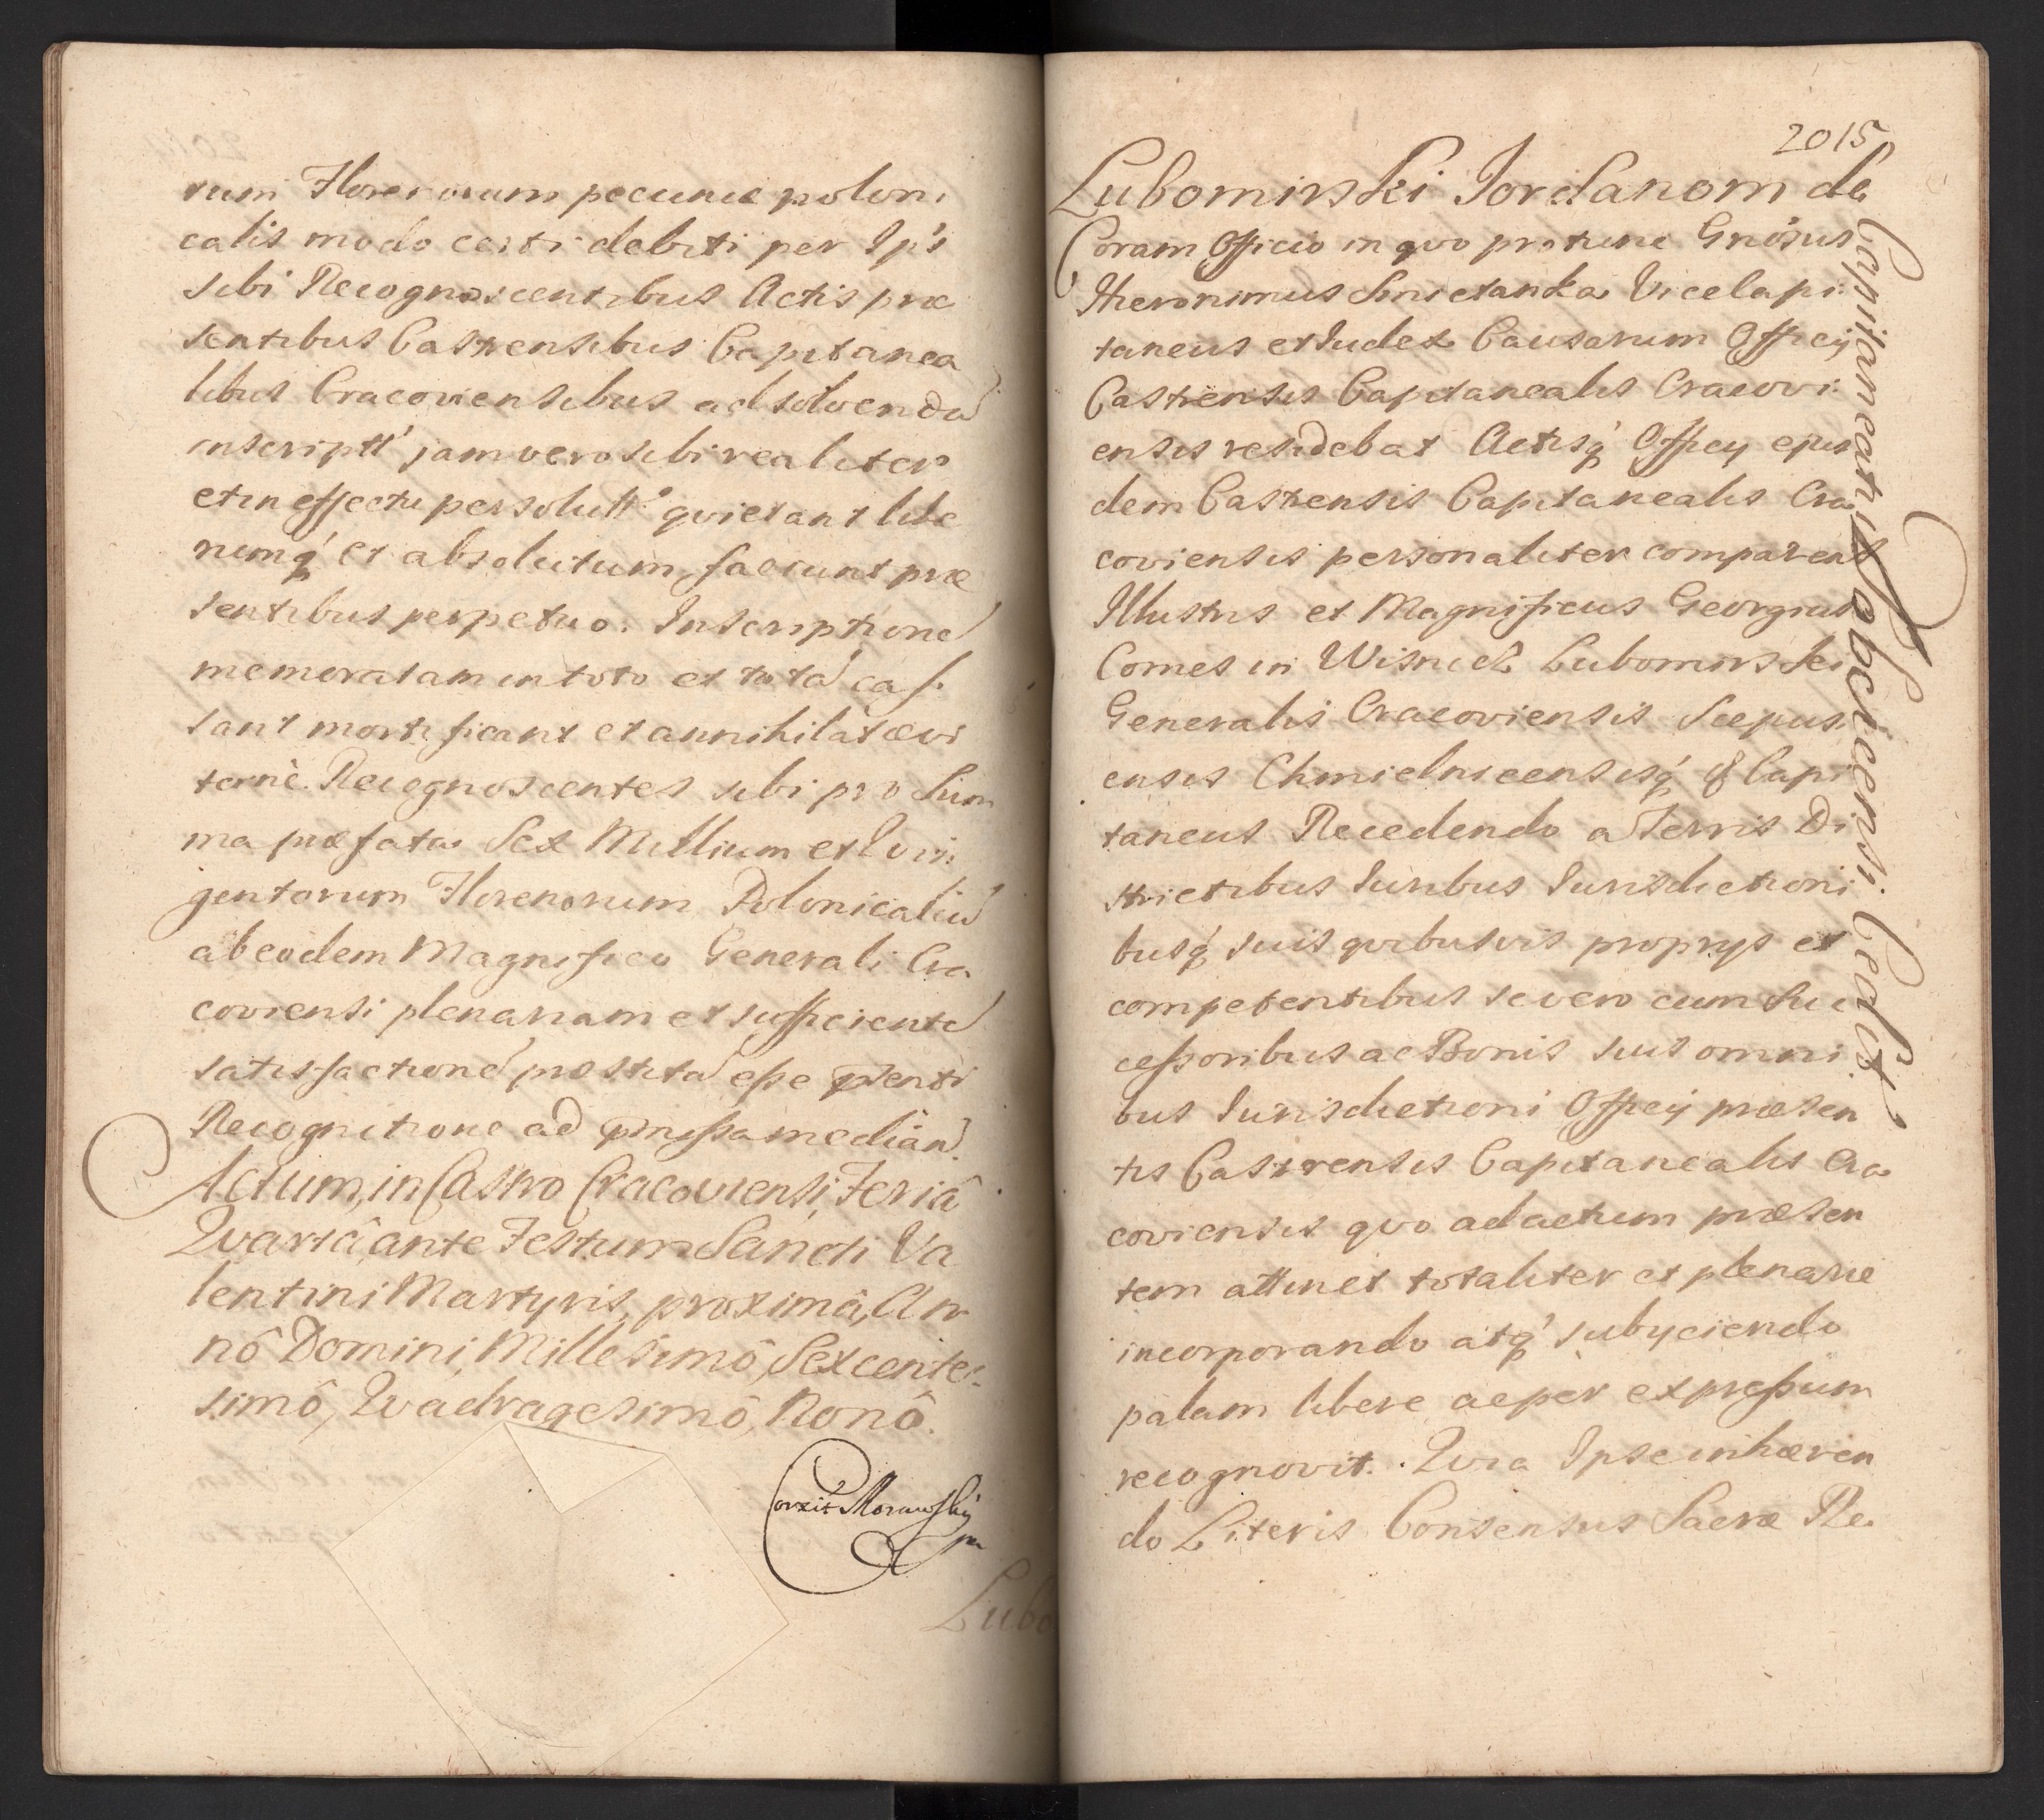 rum Florenorum pecuniæ poloni
calis modo certi debiti per Ip's
sibi Recognoscentibus Actis præ
sentibus Castrensibus Capitanea
libus Cracoviensibus ad solvendũ
inscriptt' jam vero sibi realiter
et in effectu persolutt' qvietant libe
rumq́ et absolutum faciunt præ
sentibus perpetuo. Inscriptionẽ
memoratam in toto et totã cas
sant mortificant et annihilãt ævi
ternè. Recognoscentes sibi pro Sum
ma præfata Sex Millium et Qvin
gentorum Florenorum Polonicaliũ
ab eodem Magnifico Generali Cra
coviensi plenariam et sufficientẽ
satisfactionẽ præstitã esse pñenti
Recognitione ad præmissa median̄.
Actum, in Castro Cracoviensi, Feriâ
Qvartâ ante Festum Sancti Va
lentini Martyris, proximâ, An
nô Domini Millesimô, Sexcente
simô, Qvadragesimô, Nonô.
Corxit Morawsky
mp
Lubo
2015
Lubomirski Jordanom de
Capitaneatu Dobcicensi. Cedit
Coram Officio in qvo pro tunc Gnösus
Hieronimus Smietanka Vicecapi
taneus et Iudex Causarum Officij
Castrensis Capitanealis Cracovi
ensis residebat Actisq́ Officij ejus
dem Castrensis Capitanealis Cra
coviensis personaliter comparens
Illustris et Magnificus Georgius
Comes in Wisnicz Lubomirski
Generalis Cracoviensis Scepusi
ensis Chmielnicensisq́ & Capi
taneus Recedendo a Terris Di
strictibus Iuribus Iurisdictioni
busq́ suis qvibusvis proprijs et
competentibus se vero cum Suc
cessoribus ac Bonis suis omni
bus Iurisdictioni Officij præsen
tis Castrensis Capitanealis Cra
coviensis qvo ad actum præsen
tem attinet totaliter et plenarie
incorporando atq́ subyciendo
palam libere ac per expressum
recognovit. Qvia Ipse inhæren
do Literis Consensus Sacræ Re